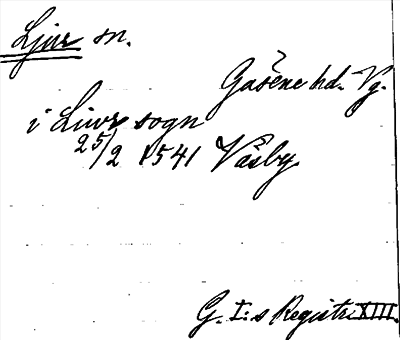 Ljur sn.
Gäsene hd. Vg.
i Liwr sogn
25/2 1541 Väsby
G. I:s Registr. XIII.